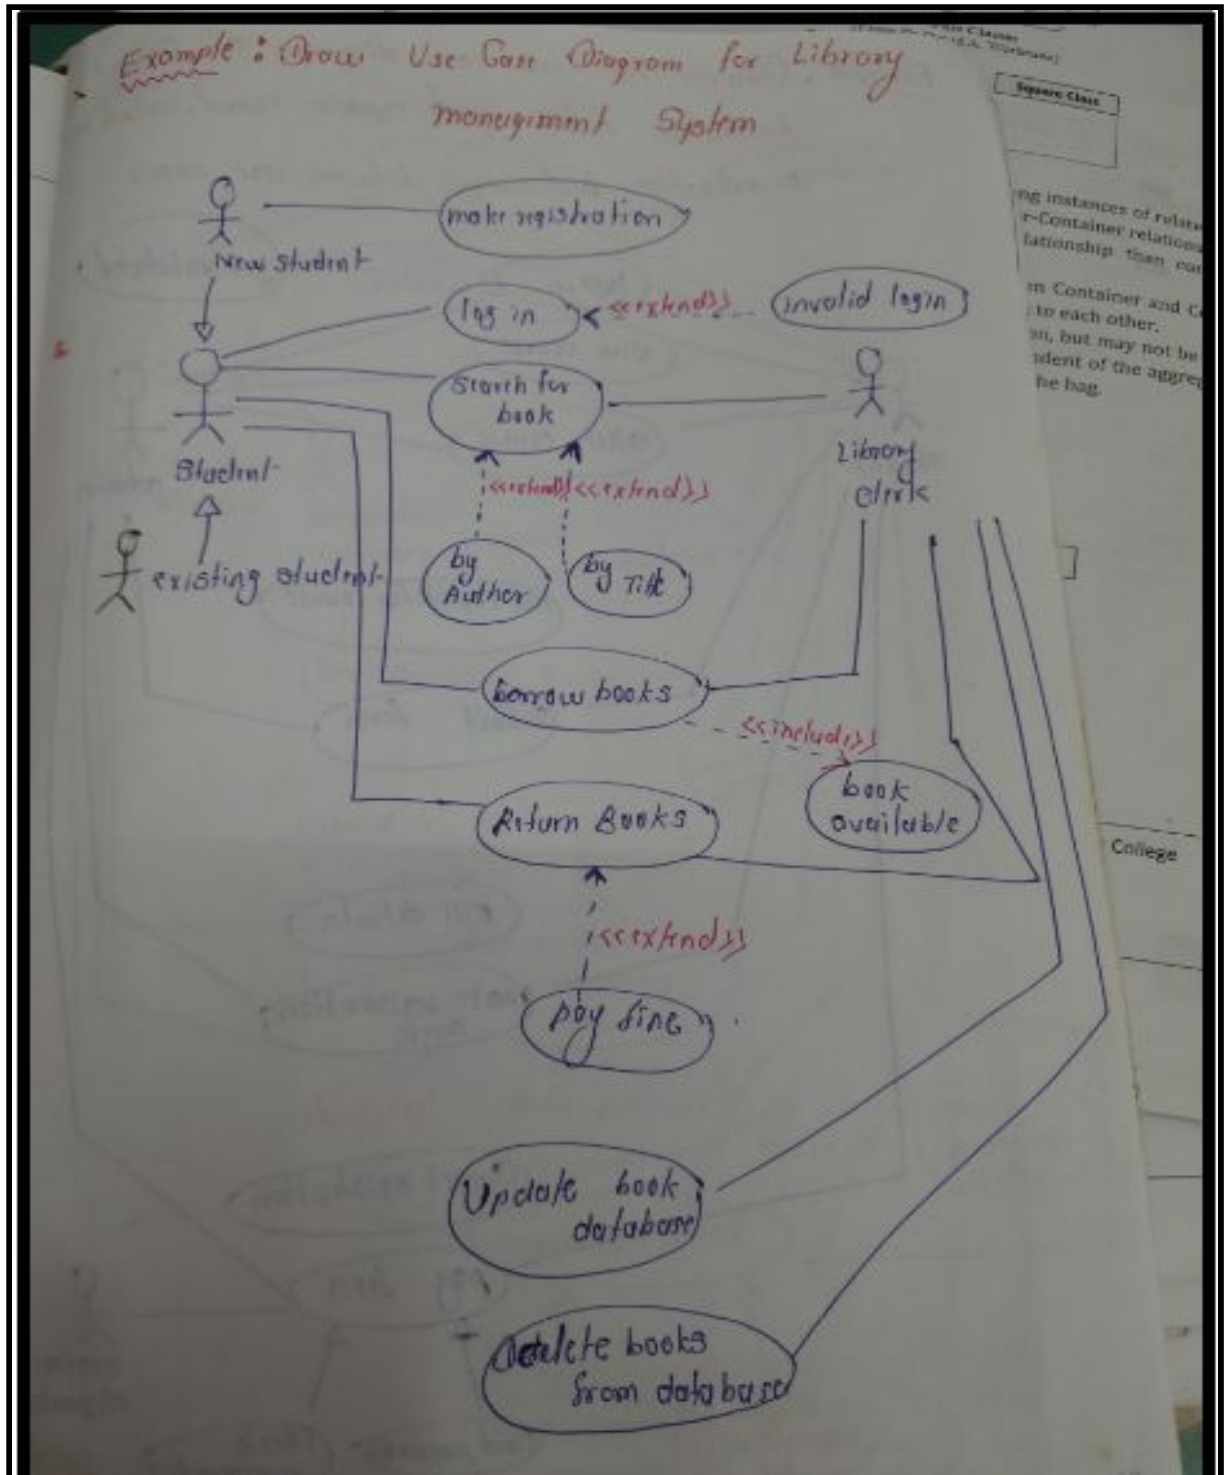 Example : Draw Use Case Diagram for Library
managiment System
Square Class
make registration
New Student
log in
<<extend>>
invalid login
Search for
book
Student
Library
Clerk
<<extend>>
<<extend>>
by
Author
by Title
existing student
borrow books
<<include>>
book
available
Return Books
<<extend>>
pay fine
Update book
database
delete books
from database
ng instances of relate
r-Container relations
lationship than con
en Container and C
to each other.
on, but may not be
ndent of the aggreg
he bag.
College